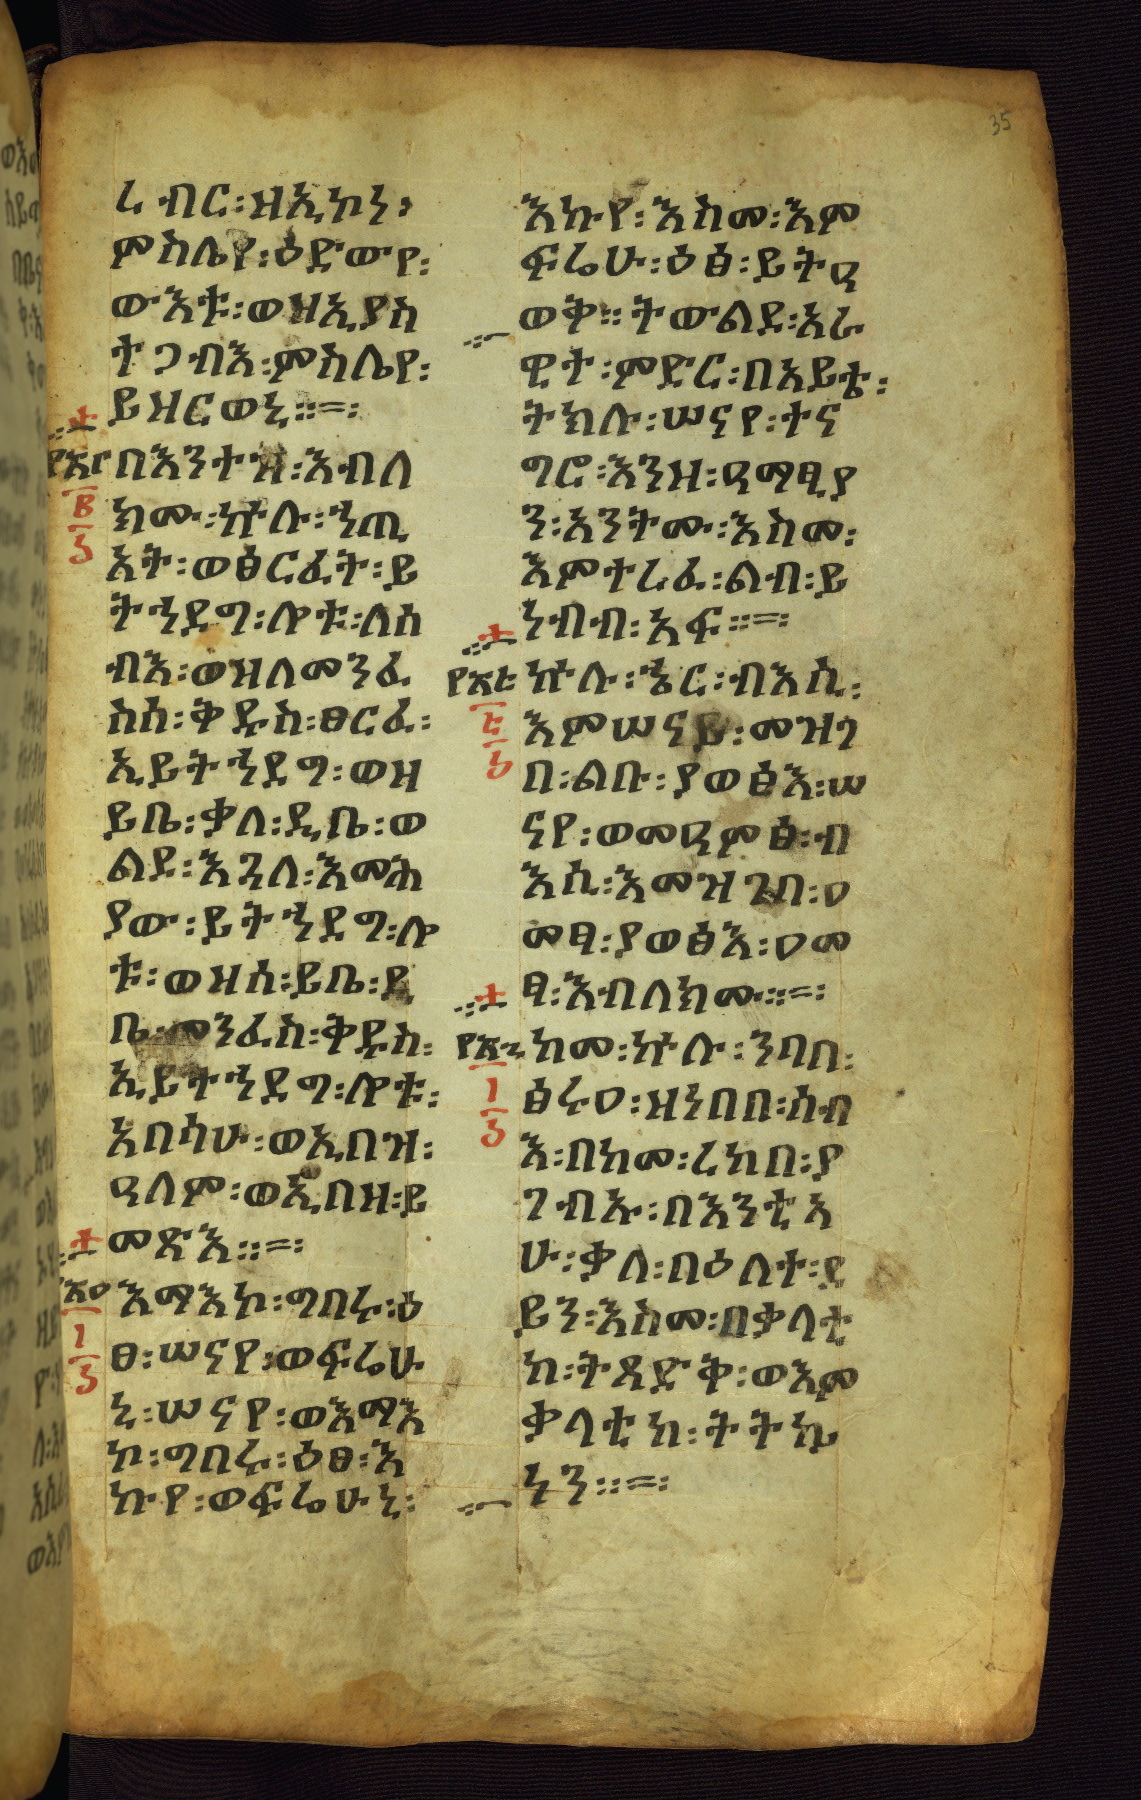 35
ሬብር፡ዘኢኮነ፡
ምስሌየ፡ዕድውየ፡
ውእቱ፡ወዘኢያስ
ተጋብእ፡ምስሌየ፡
ይዘርወኒ።=፡
በእንተዝ፡እብለ
ክሙ፡ኵሉ፡ኀጢ
አት፡ወፅርፈት፡ይ
ትኀደግ፡ሎቱ፡ለሰ
ብእ፡ወዝለመንፈ
ስሰ፡ቅዱስ፡ፀርፈ፡
ኢይትኀደግ፡ወዘ
ይቤ፡ቃለ፡ዲቤ፡ወ
ልደ፡እጓለ፡እመሕ
ያው፡ይትኀደግ፡ሎ
ቱ፡ወዝሰ፡ይቤ፡ዲ
ቤ፡መንፈስ፡ቅዱስ፡
ኢይትኀደግ፡ሎቱ፡
አበሳሁ፡ወኢበዝ፡
ዓለም፡ወኢበዘ፡ይ
መጽእ።=፡
እማእኮ፡ግበሩ፡ዕ
ፀ፡ሠናየ፡ወፍሬሁ
ኒ፡ሠናየ፡ወእማእ
ኮ፡ግበሩ፡ዕፀ፡እ
ኩየ፡ወፍሬሁኒ፡
እኩየ፡እስመ፡እም
ፍሬሁ፡ዕፅ፡ይትዓ
ወቅ።ትውልደ፡አራ
ዊተ፡ምድር፡በአይቴ፡
ትክሉ፡ሠናየ፡ተና
ግሮ፡እንዘ፡ዓማፂያ
ን፡አንትሙ፡እስመ፡
እምተረፈ፡ልብ፡ይ
ነብብ፡አፍ።=፡
የ፳፭
ኵሉ፡ኄር፡ብእሲ፡
እምሠናይ፡መዝገ
በ፡ልቡ፡ያወፅእ፡ሠ
ናየ፡ወመዓምፅ፡ብ
እሲ፡እመዝገበ፡ዐ
መፃ፡ያወፅእ፡ዐመ
ፃ፡እብለክሙ።=፡
ከመ፡ኵሉ፡ንባበ፡
ፅሩዐ፡ዘነበበ፡ሰብ
እ፡በከመ፡ረከበ፡ያ
ገብኡ፡በእንቲአ
ሁ፡ቃለ፡በዕለተ፡ደ
ይን፡እስመ፡በቃላቲ
ከ፡ትጻድቅ፡ወእም
ቃላቲከ፡ትትኴ
ነን።=፡